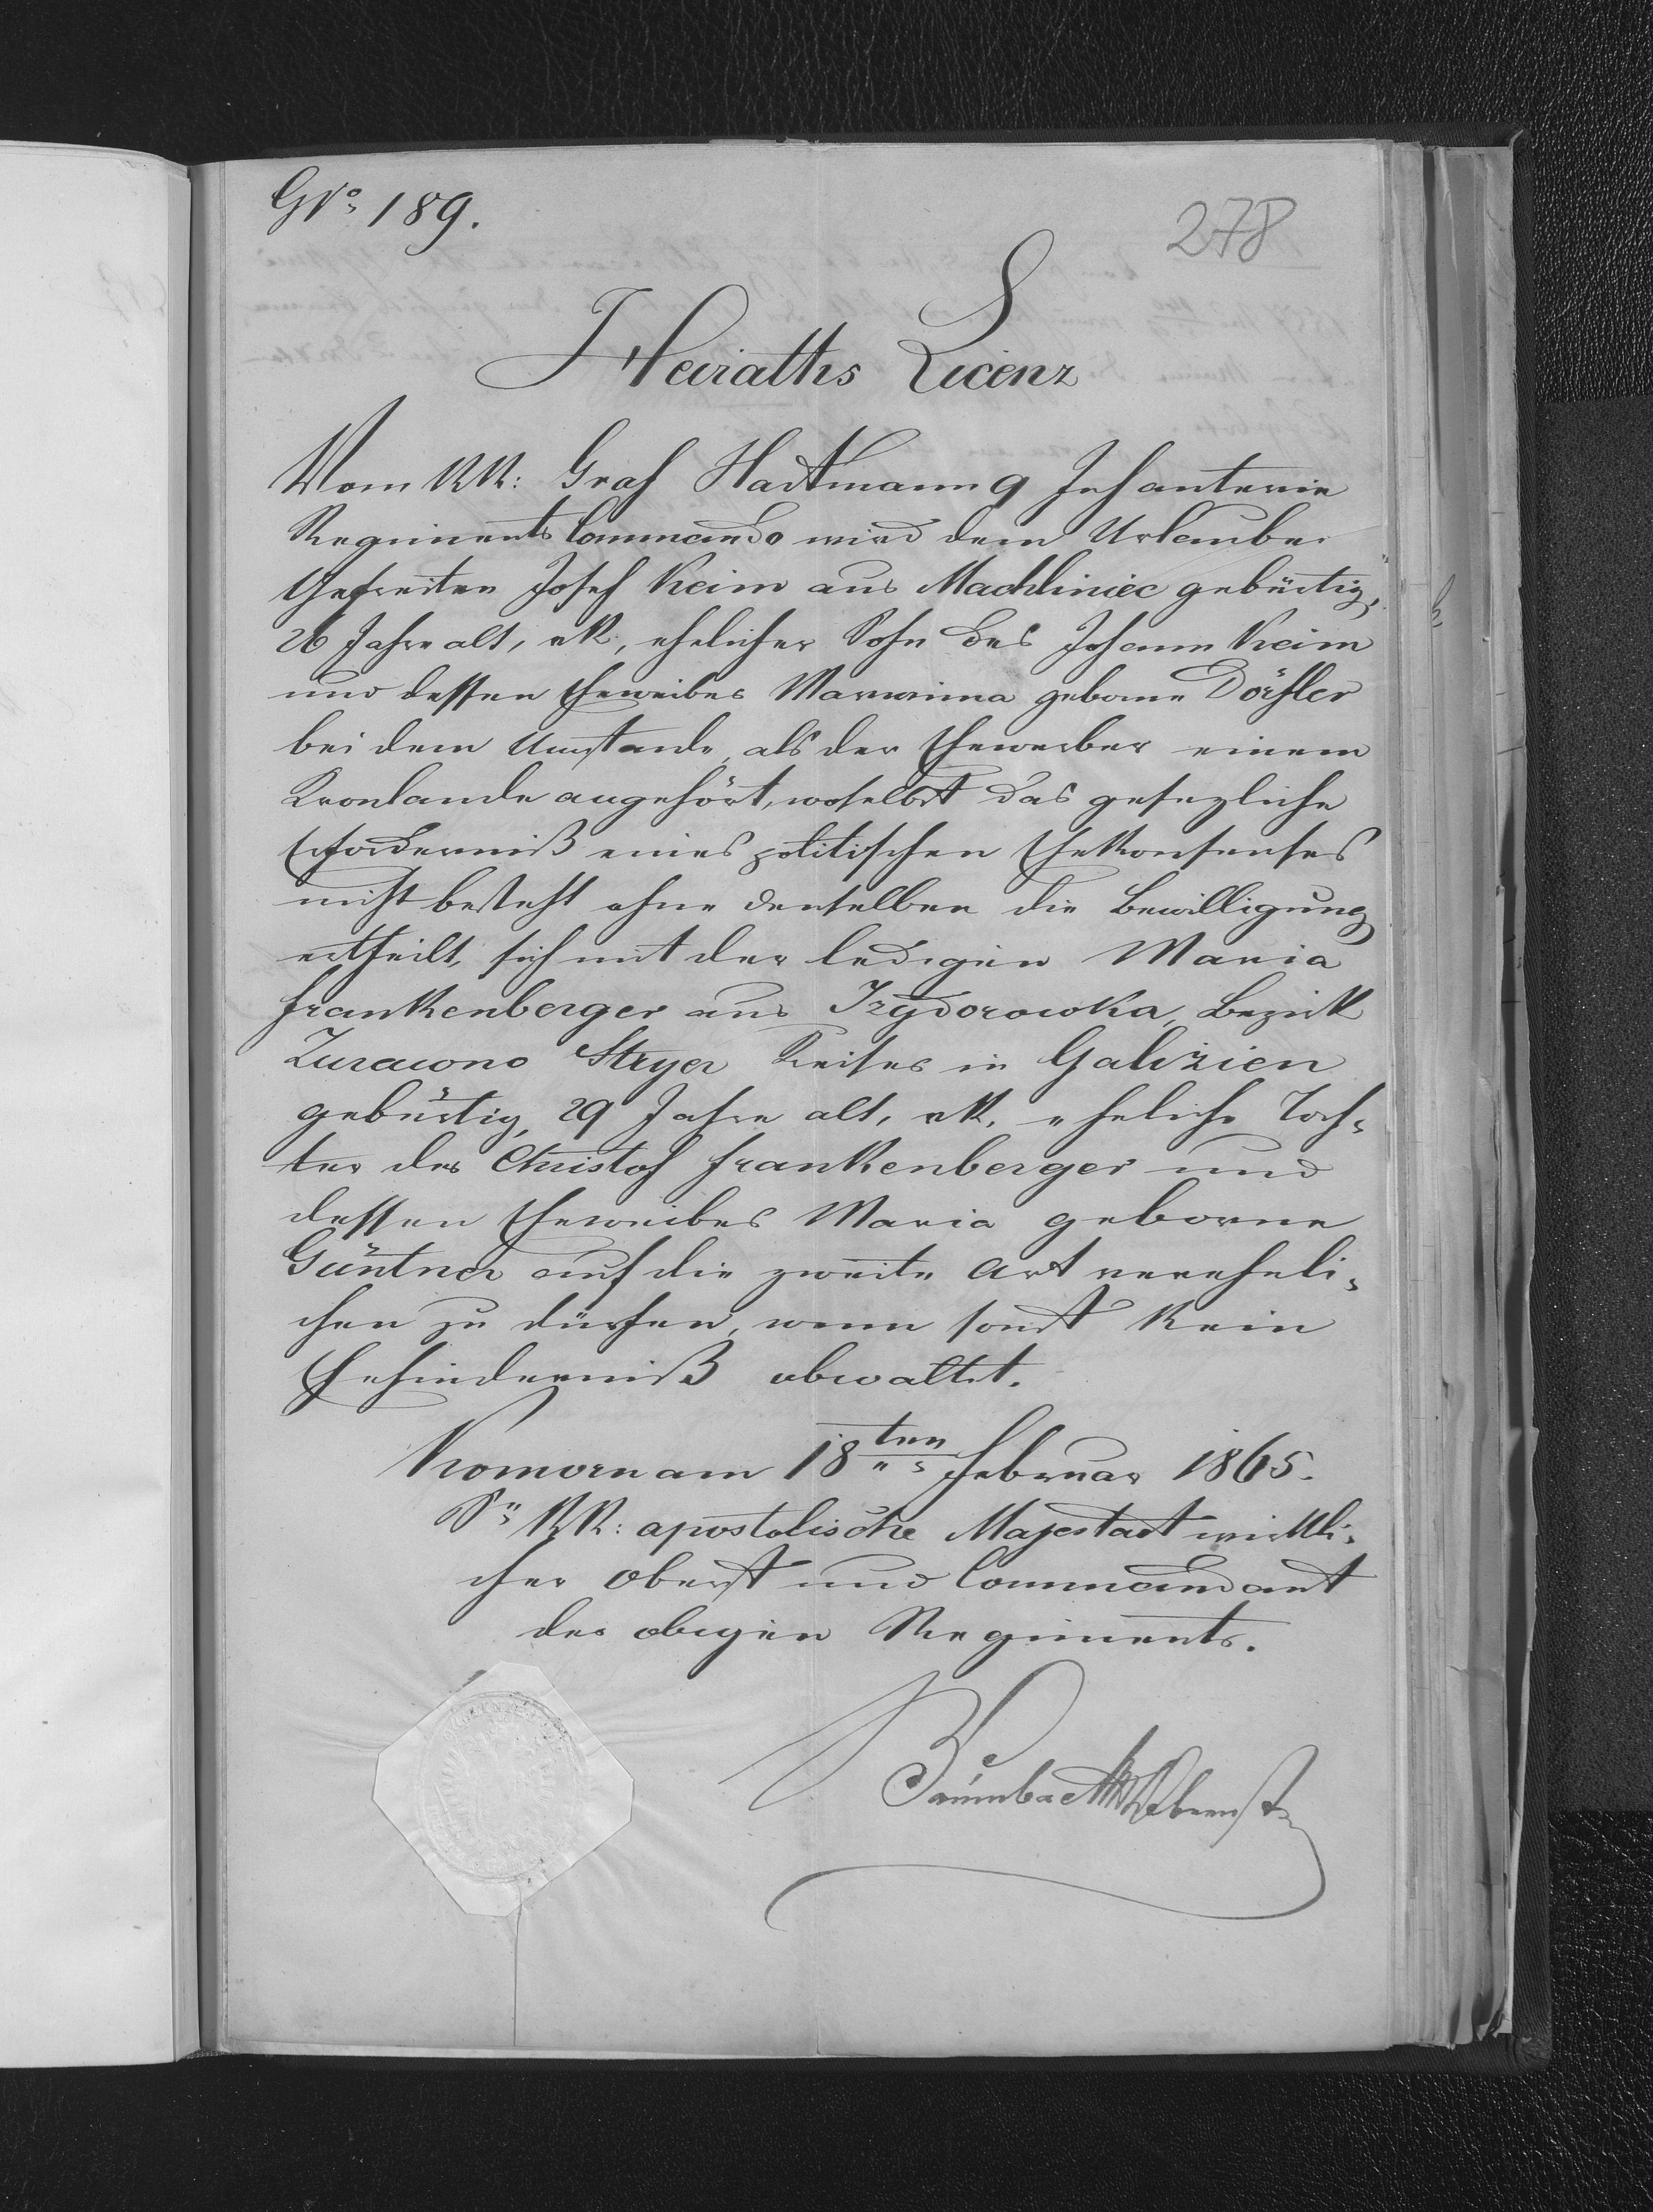 GNo 189.
278
Heiraths Licenz
Vom KK: Graf Hartmann 9 Infanterie
Regiments Commando wird dem Urlauber
Gefreiten Josef Keim aus Machliniec gebürtig,
26 Jahre alt, rk, ehelicher Sohn des Johann Keim
und dessen Eheweibes Marianna geborne Dörfler
bei dem Umstande, als der Ehewerber einem
Kronlande angehört, woselbst das gesezliche
Erforderniß eines politischen Ehekonsenses
nicht besteht ohne denselben die Bewilligung
ertheilt, sich mit der ledigen Maria
Frankenberger aus Izydorowka, Bezirk
Zurawno Stryer Kreises in Galizien
gebürtig, 29 Jahre alt, rk. eheliche Toch-
ter des Christof Frankenberger und
dessen Eheweibes Maria geborne
Güntner auf die zweite Art vereheli-
chen zu dürfen, wenn sonst kein
Ehehinderniß obwaltet.
Komorn am 18ten Februar 1865.
Sr KK: apostolische Majestaet wirkli-
cher Oberst und Commandant
des obigen Regiments.
Oberst